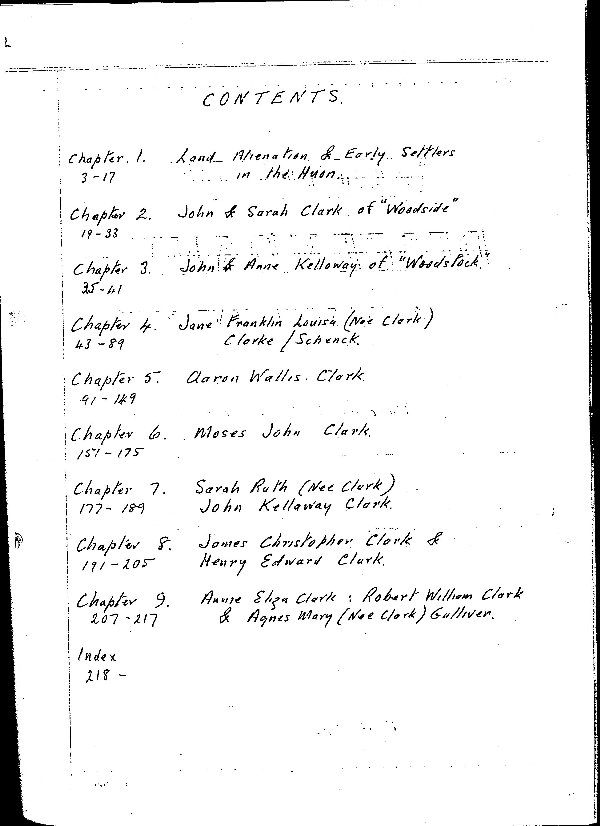 CONTENTS.
Chapter 1. Land Alienation & Early Settlers
3-17 in the Huon.
Chapter 2. John & Sarah Clark of "Woodside"
19-33
Chapter 3. John & Anne Kelloway of "Woodstock"
35-41
Chapter 4. Jane Franklin Louisa (Nee Clark)
43-89 Clarke / Schenck.
Chapter 5. Aaron Wallis Clark.
91-149
Chapter 6. Moses John Clark.
151-175
Chapter 7. Sarah Ruth (Nee Clark)
177-189 John Kellaway Clark.
Chapter 8. James Christopher Clark &
191-205 Henry Edward Clark.
Chapter 9. Annie Eliza Clark; Robert William Clark
207-217 & Agnes Mary (Nee Clark) Gulliver.
Index
218 -